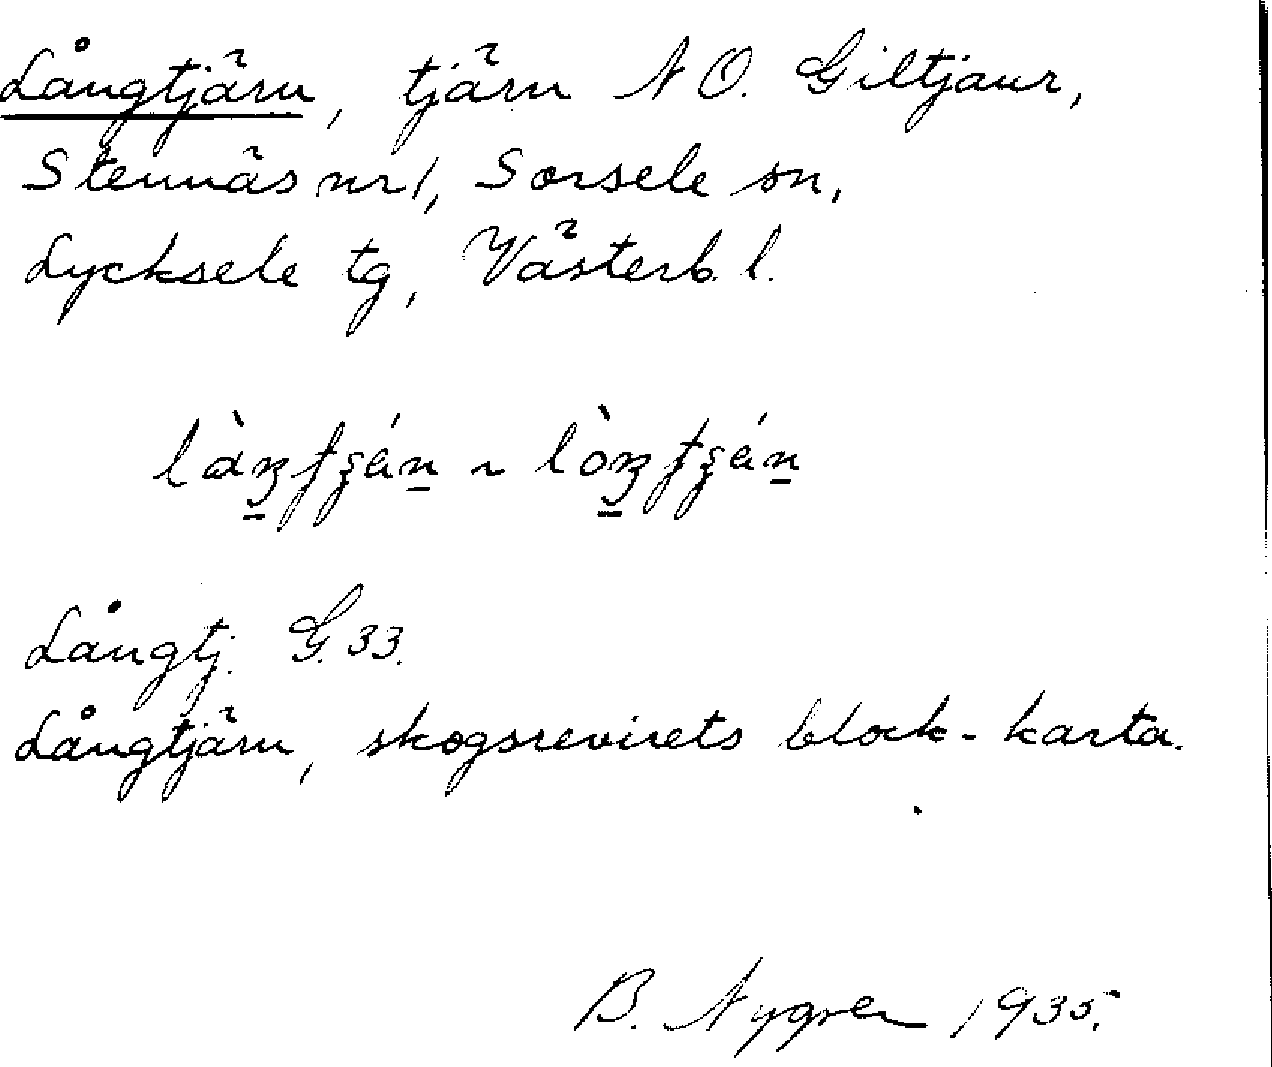 Långtjärn, tjärn N O. Giltjaur,
Stennäs nr 1, Sorsele sn,
Lycksele tg, Västerb. l.
Långtj. G. 33.
Långtjärn, skogsrevirets block-karta.
B. Nygren 1935.